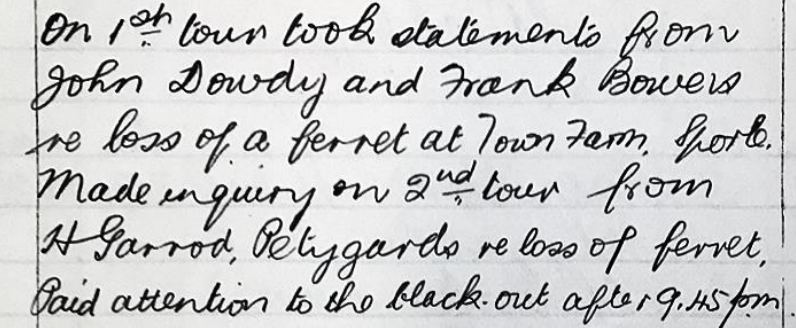 On 1st tour took statements from
John Dowdy and Frank Bowers
re loss of a ferret at Town Farm, Sporle.
Made inquiry on 2nd tour from
H Garrod, Petygards re loss of ferret,
Paid attention to the black-out after 9.45 pm.